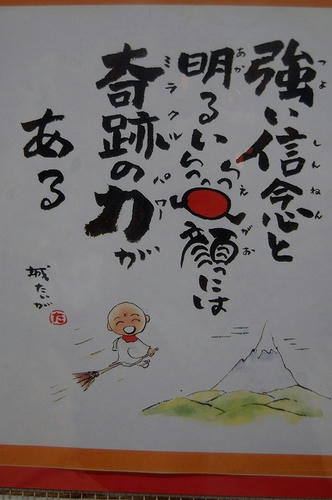 強い信念と
つよ しんねん
明るい笑顔には
あか えがお
奇跡の力が
ミラクル パワー
ある
城たいが